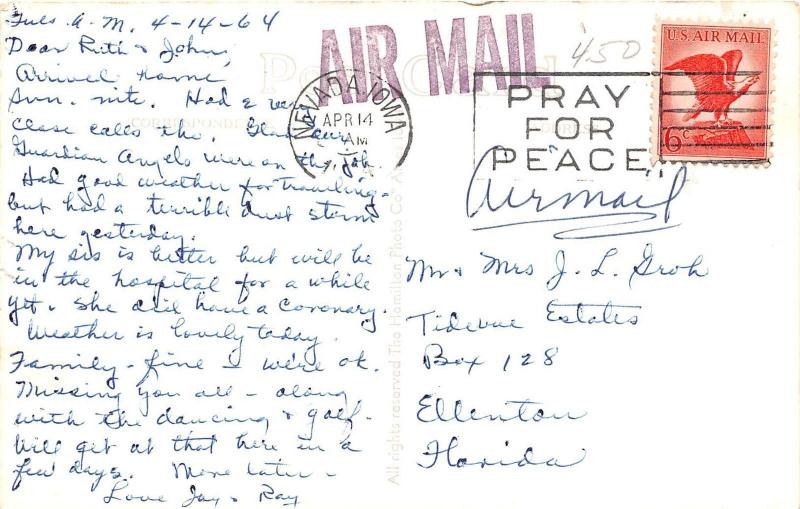 Tues A.M. 4-14-64
Dear Ruth & John,
Arrived home
Sun. nite. Had 2 very
close calls tho. Glad our
Guardian Angels were on the job.
Had good weather for traveling-
but had a terrible dust storm
here yesterday.
My sis is better but will be
in the hospital for a while
yet. She did have a coronary.
Weather is lovely today.
Family - fine & we're ok.
Missing you all - along
with the dancing & golf.
Will get at that here in a
few days. More later -
Love Jay & Ray
AIR MAIL
POST CARD
CORRESPONDENCE
ADDRESS
NEVADA, IOWA
APR 14
AM
PRAY
FOR
PEACE
450
U.S. AIR MAIL
6c
Airmail
Mr & Mrs J. L. Groh
Tidevue Estates
Box 128
Ellenton
Florida
All rights reserved The Hamilton Photo Co